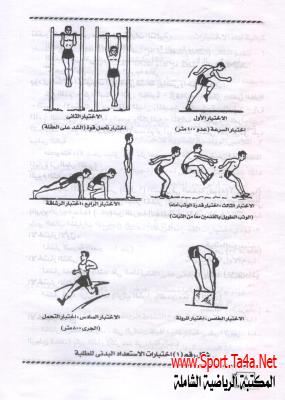 الاختبار الأول
اختبار السرعة (عدو ١٠٠ متر)
الاختبار الثانى
اختبار تحمل قوة (الشد على العقلة)
الاختبار الثالث ، اختبار قدرة الوثب أماماً
(الوثب الطويل بالقدمين معاً من الثبات)
الاختبار الرابع ، اختبار الرشاقة
الاختبار الخامس ، اختبار المرونة
الاختبار السادس ، اختبار التحمل
(الجرى ٨٠٠ متر)
شكل رقم (١) اختبارات الاستعداد البدنى للطلبة
www.Sport.Ta4a.Net
المكتبة الرياضية الشاملة